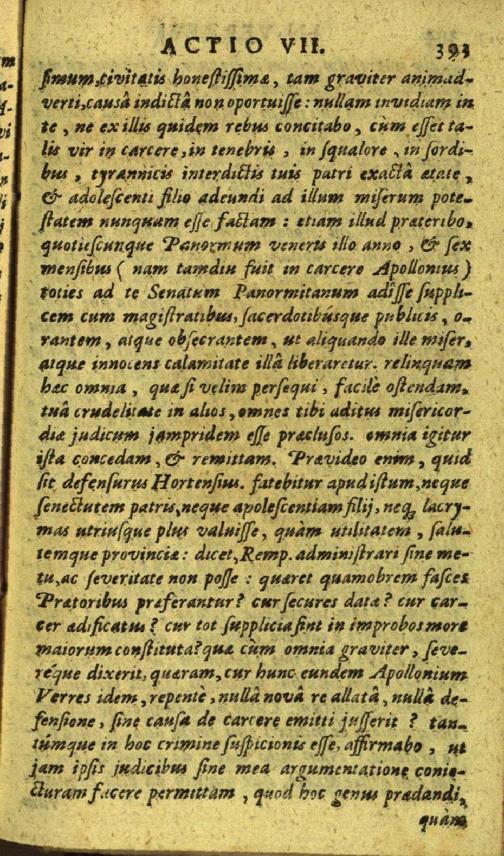 ACTIO VII. 393
ſimum, civitatis honeſtiſſimæ, tam graviter animad-
verti, cauſâ indictâ non oportuiſſe: nullam invidiam in
te, ne ex illis quidem rebus concitabo, cùm eſſet ta-
lis vir in carcere, in tenebris, in ſqualore, in ſordi-
bus, tyrannicis interdictis tuis patri exactâ ætate,
& adoleſcenti filio adeundi ad illum miſerum pote-
ſtatem nunquam eſſe factam: etiam illud præteribo,
quotieſcunque Panormum veneris illo anno, & ſex
menſibus (nam tamdiu fuit in carcere Apollonius)
toties ad te Senatum Panormitanum adîſſe ſuppli-
cem cum magiſtratibus, ſacerdotibúsque publicis, o-
rantem, atque obſecrantem, ut aliquando ille miſer,
atque innocens calamitate illâ liberaretur. relinquam
hæc omnia, quæ ſi velim perſequi, facilè oſtendam,
tuâ crudelitate in alios, omnes tibi aditus miſericor-
diæ judicum jampridem eſſe præcluſos. omnia igitur
iſta concedam, & remittam. Prævideo enim, quid
ſit defenſurus Hortenſius. fatebitur apud iſtum, neque
ſenectutem patris, neque apoleſcentiam filij, neq; lacry-
mas utriuſque plus valuiſſe, quàm utilitatem, ſalu-
temque provinciæ: dicet, Remp. adminiſtrari ſine me-
tu, ac ſeveritate non poſſe: quæret quamobrem faſces
Prætoribus præferantur? cur ſecures datæ? cur car-
cer ædificatus? cur tot ſupplicia ſint in improbos more
maiorum conſtituta? quæ cùm omnia graviter, ſeve-
réque dixerit, quæram, cur hunc eundem Apollonium
Verres idem, repentè, nullâ novâ re allatâ, nullâ de-
fenſione, ſine cauſa de carcere emitti juſſerit? tan-
túmque in hoc crimine ſuſpicionis eſſe, affirmabo, ut
jam ipſis judicibus ſine mea argumentatione conie-
cturam facere permittam, quod hoc genus prædandi,
quàm